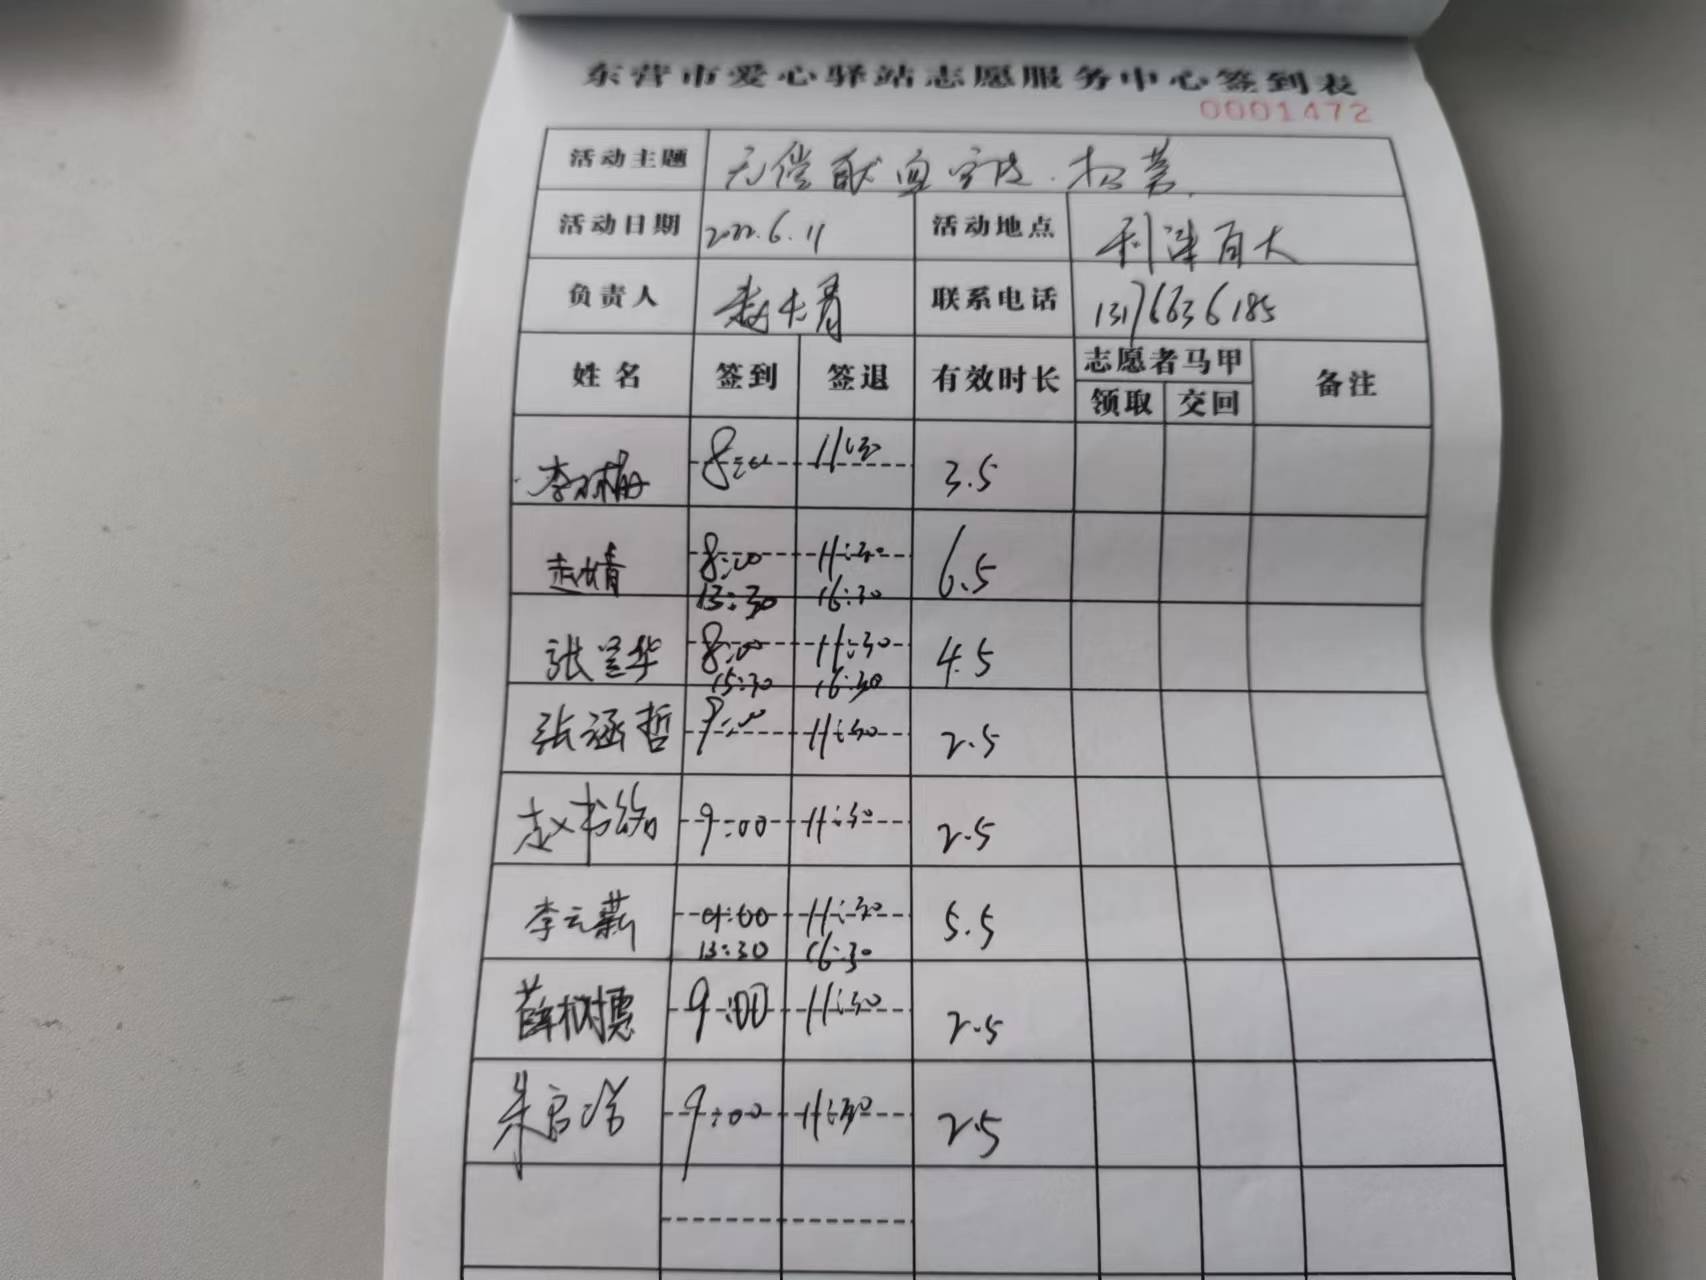 东营市爱心驿站志愿服务中心签到表
0001472
活动主题 无偿献血宣传.招募
活动日期 2022.6.11 活动地点 利津百大
负责人 联系电话 13176636185
姓名 签到 签退 有效时长 志愿者马甲 备注
领取 交回
8:00 11:30 3.5
赵婧 8:00 11:30 6.5
13:30 16:30
8:00 11:30 4.5
15:30 16:30
张涵哲 9:00 11:30 2.5
9:00 11:30 2.5
李云薪 09:00 11:30 5.5
13:30 16:30
9:00 11:30 2.5
9:00 11:30 2.5